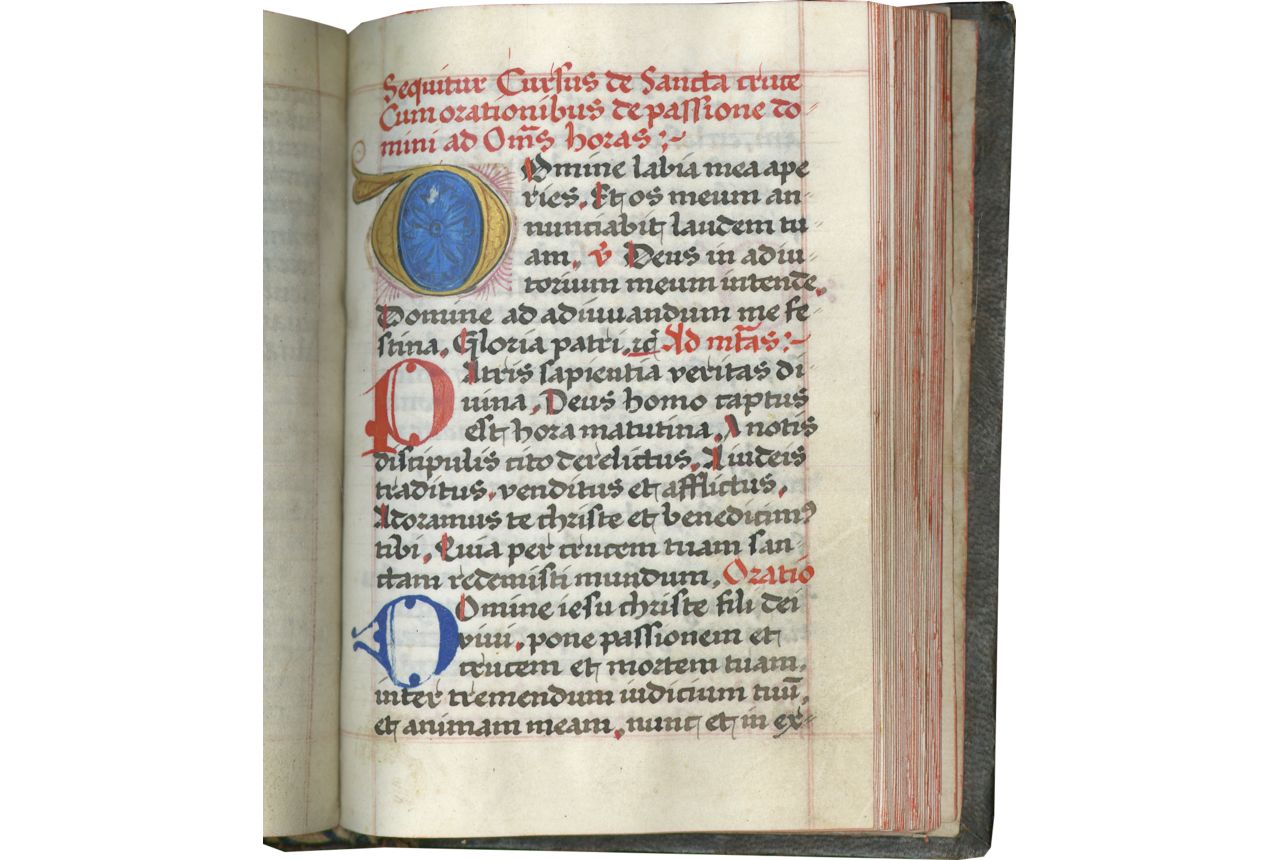 Sequitur Cursus de Sancta cruce
Cum orationibus de passione do
mini ad Om̄s horas :~
Domine labia mea ape
ries. Et os meum an-
nunciabit laudem tu-
am. v̄ Deus in adiu-
torium meum intende.
Domine ad adiuuandum me fe-
stina. Gloria patri. ⁊c̄ Ad mt̄as :~
Patris sapientia veritas di-
uina. Deus homo captus
est hora matutina. A notis
discipulis cito derelictus. A iudeis
traditus. venditus et afflictus.
Adoramus te christe et benedicimꝰ
tibi. Quia per crucem tuam san-
ctam redemisti mundum. Oratio
Domine iesu christe fili dei
viui. pone passionem et
crucem et mortem tuam.
inter tremendum iudicium tuū.
et animam meam. nunc et in ex-